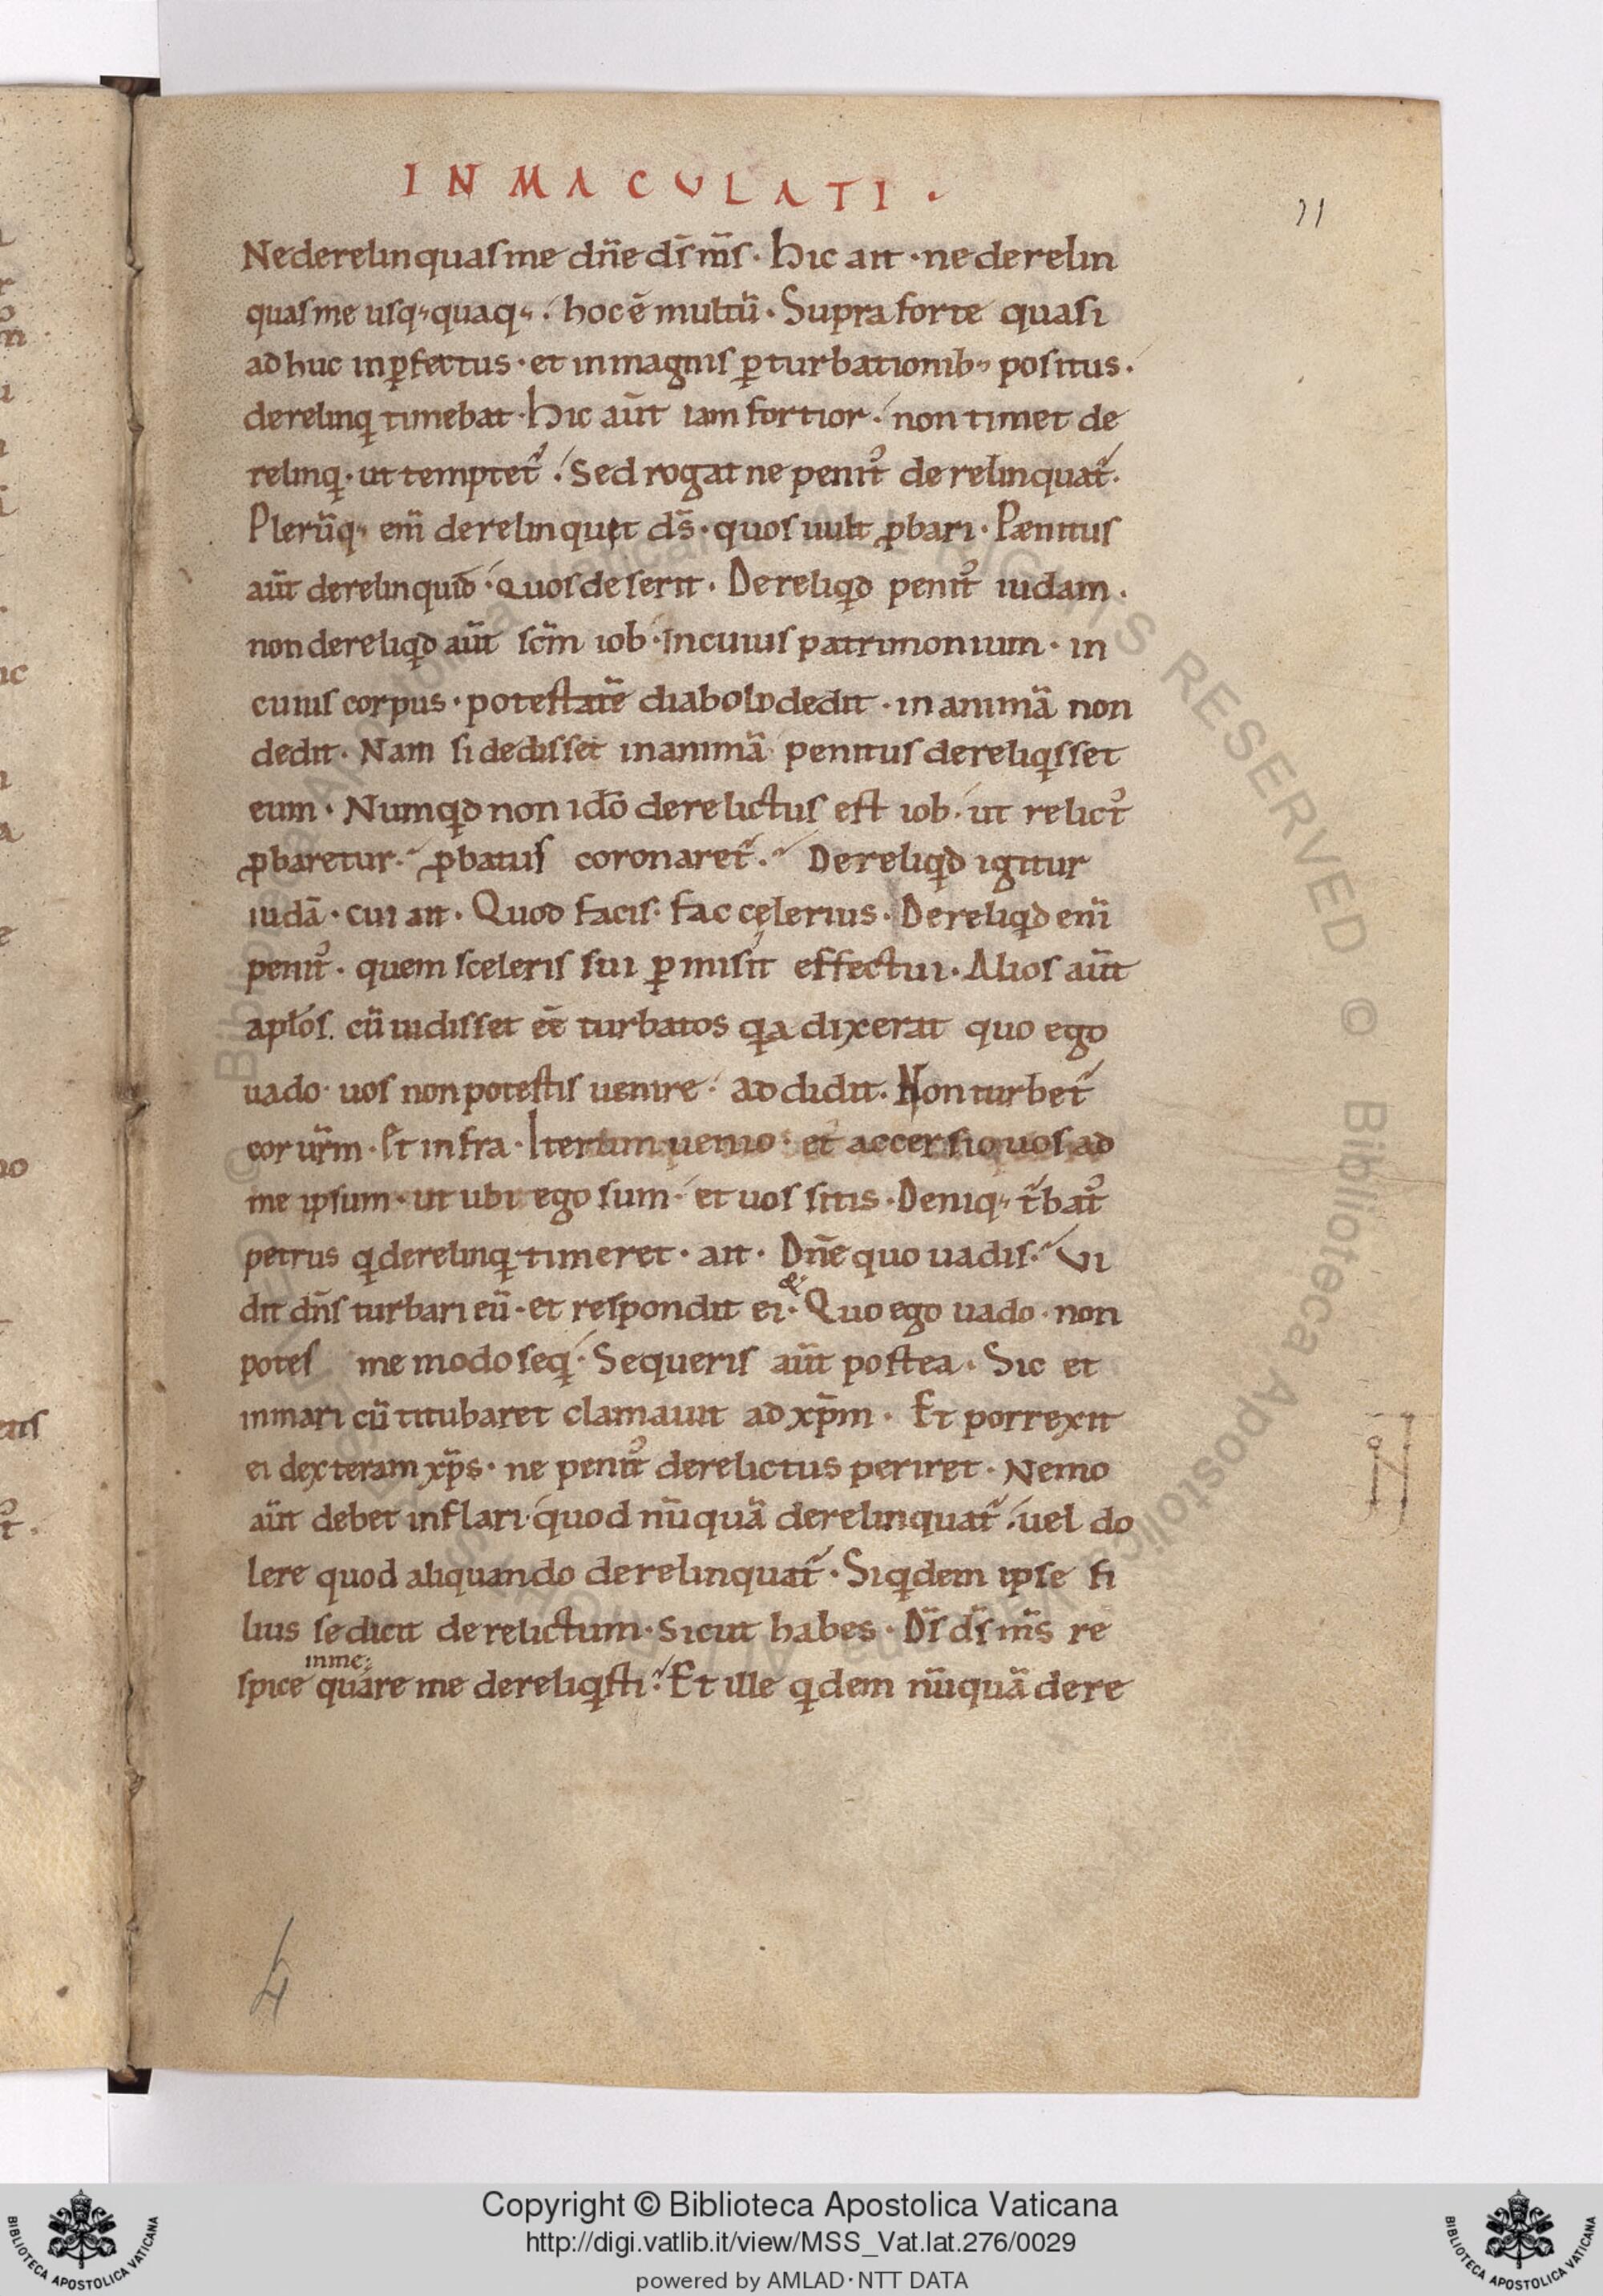 INMACULATI.
11
Nederelinquasme dn̄e ds̄ ms̄. Hic ait. ne derelin
quasme usq; quaq;. hoc ē multū. Supra forte quasi
ad huc inp̱fectus. et in magnis p̱turbationib; positus.
derelinq̓ timebat. Hic aūt iam fortior. non timet de
relinq̓. ut temptet᷑. Sed rogat ne penitꝰ derelinquat᷑.
Plerūq; enī derelinquit ds̄. quos uult ꝓbari. Pænitus
aūt derelinquid. quos deserit. Dereliqͥd penitꝰ iudam.
non dereliqͥd aūt scm̄ iob. In cuius patrimonium. in
cuius corpus. potestatē diabolo dedit. in animā non
dedit. Nam si dedisset in animā penitus dereliqͥsset
eum. Numqͥd non idō derelictus est iob. ut relictꝰ
ꝓbaretur. ꝓbatus coronaret᷑. Dereliqͥd igitur
iudā. cui ait. Quod facis. fac cęlerius. Dereliqͥd enī
penitꝰ. quem sceleris sui p̱misit effectui. Alios aūt
apłos. cū uidisset eē turbatos qͥa dixerat quo ego
uado. uos non potestis uenire. addidit. Non turbet᷑
cor ur̄m. Et infra. Iterum uenio. et accersio uos ad
me ipsum. ut ubi ego sum. et uos sitis. Deniq; t᷑batꝰ
petrus qͥ derelinqͥ timeret. ait. Dn̄e quo uadis. Vi
&
dit dn̄s turbari eū. et respondit ei. Quo ego uado. non
potes me modo seqͥ. Sequeris aūt postea. Sic et
in mari cū titubaret clamauit ad xp̄m. Et porrexit
ei dexteram xp̄s. ne penitꝰ derelictus periret. Nemo
aūt debet inflari quod nūquā derelinquat᷑. uel do
lere quod aliquando derelinquat᷑. Siqͥdem ipse fi
lius se dicit derelictum. Sicut habes. Ds̄ ds̄ ms̄ re
in me
spice quare me dereliqͥsti. Et ille qͥdem nūquā dere
4
Copyright © Biblioteca Apostolica Vaticana
http://digi.vatlib.it/view/MSS_Vat.lat.276/0029
powered by AMLAD·NTT DATA
BIBLIOTECA APOSTOLICA VATICANA
BIBLIOTECA APOSTOLICA VATICANA